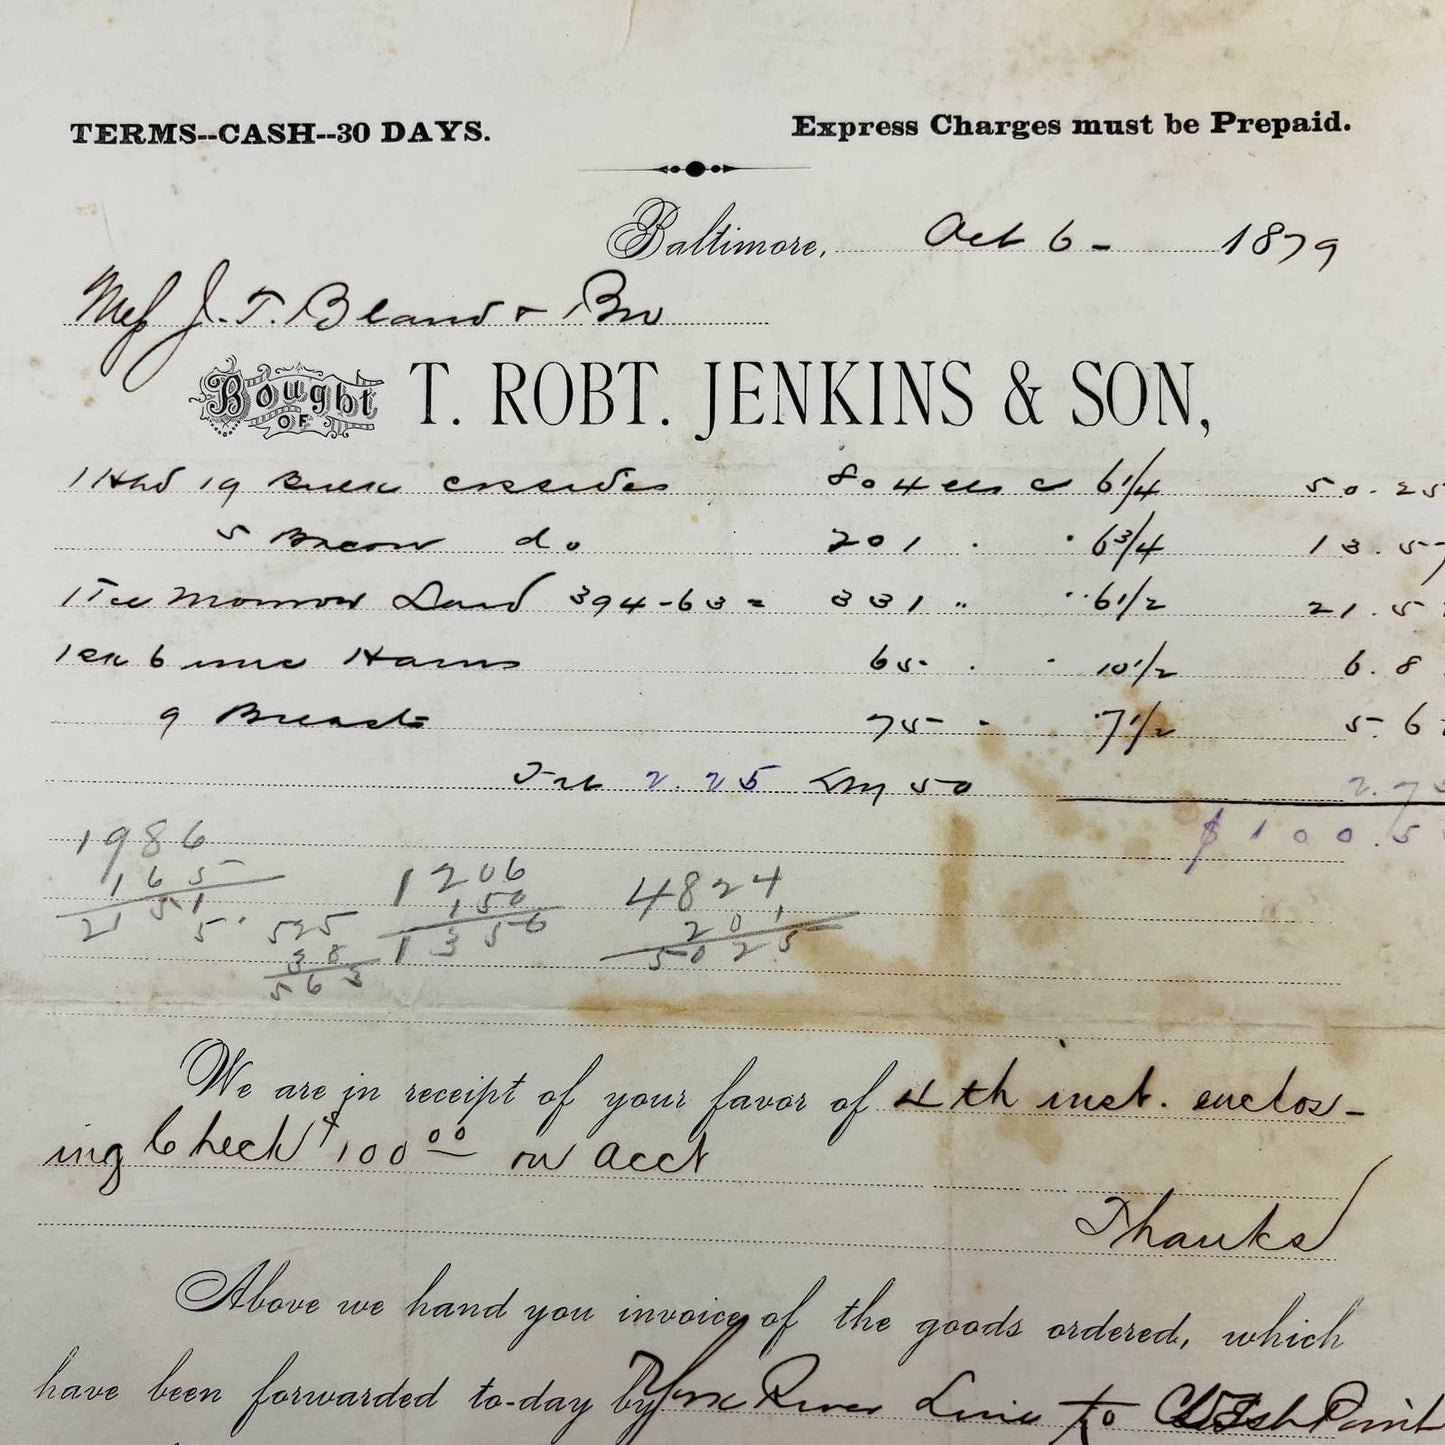 TERMS--CASH--30 DAYS. Express Charges must be Prepaid.
Baltimore, Oct 6 - 1879
Mess J. T. Bland & Bro
Bought OF T. ROBT. JENKINS & SON,
1 Hhd 19 Bulk 804 6 1/4 50.25
5 Bacon do 201 " " 6 3/4 13.57
1 Tce Lard 394-63 = 331 " " 6 1/2 21.5
6 Hams 65 " " 10 1/2 6.8
9 Breasts 75 " " 7 1/2 5.6
2.25 50 2.75
$100.5
1986
165
2151
5.
525
38
563
1206
150
1356
4824
201
5025
We are in receipt of your favor of 4th inst. enclos-
ing Check $100 00 on acct
Thanks
Above we hand you invoice of the goods ordered, which
have been forwarded to-day by York River Line to West Point